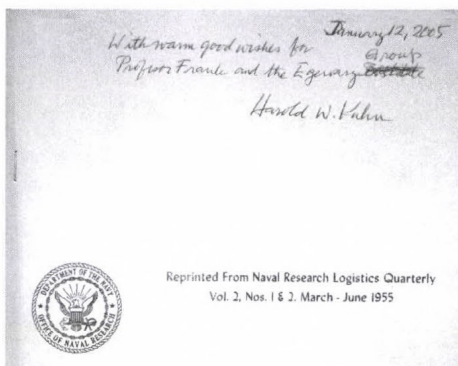 January 12, 2005
With warm good wishes for
Professor Frank and the Egervary Group
Harold W. Kuhn
DEPARTMENT OF THE NAVY
OFFICE OF NAVAL RESEARCH
Reprinted From Naval Research Logistics Quarterly
Vol. 2, Nos. 1 & 2. March - June 1955